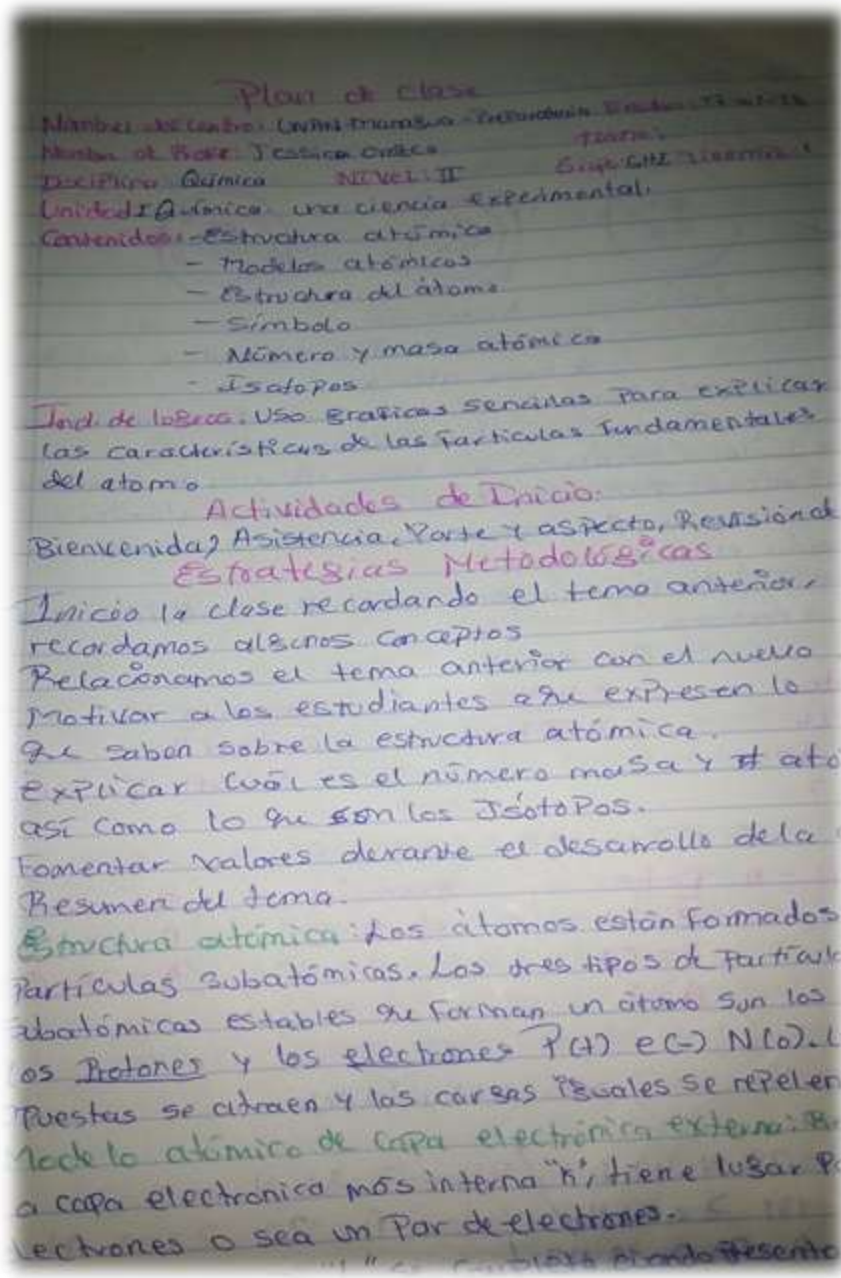 Plan de clase
Nombre del centro: UNAN-Managua-Preparatoria
Nombre de Profe: Jessica
Disciplina Química NIVEL: II
Unidad I Química una ciencia experimental.
Contenidos: - Estructura atómica
- Modelos atómicos
- Estructura del átomo
- Símbolo
- Número y masa atómica
- Isotopos
Ind. de logro: Uso graficas sencillas para explicar
las características de las Partículas Fundamentales
del atomo
Actividades de Inicio:
Bienvenida, Asistencia, Porte y aspecto, Revisión d
Estrategias Metodológicas
Inicio la clase recordando el tema anterior,
recordamos algunos conceptos
Relacionamos el tema anterior con el nuevo
Motivar a los estudiantes a que expresen lo
que saben sobre la estructura atómica.
explicar cuál es el número masa y # ató
así como lo que son los Isótopos.
Fomentar valores durante el desarrollo de la
Resumen del tema.
Estructura atómica: Los átomos están formados
Partículas subatómicas. Los tres tipos de Partícul
ubatómicas estables que forman un átomo son los
os Protones y los electrones P(+) e(-) N(o).
Puestas se atraen y las cargas iguales se repelen
Modelo atómico de capa electrónica externa:
a capa electronica más interna "k", tiene lugar P
lectrones o sea un Par de electrones.